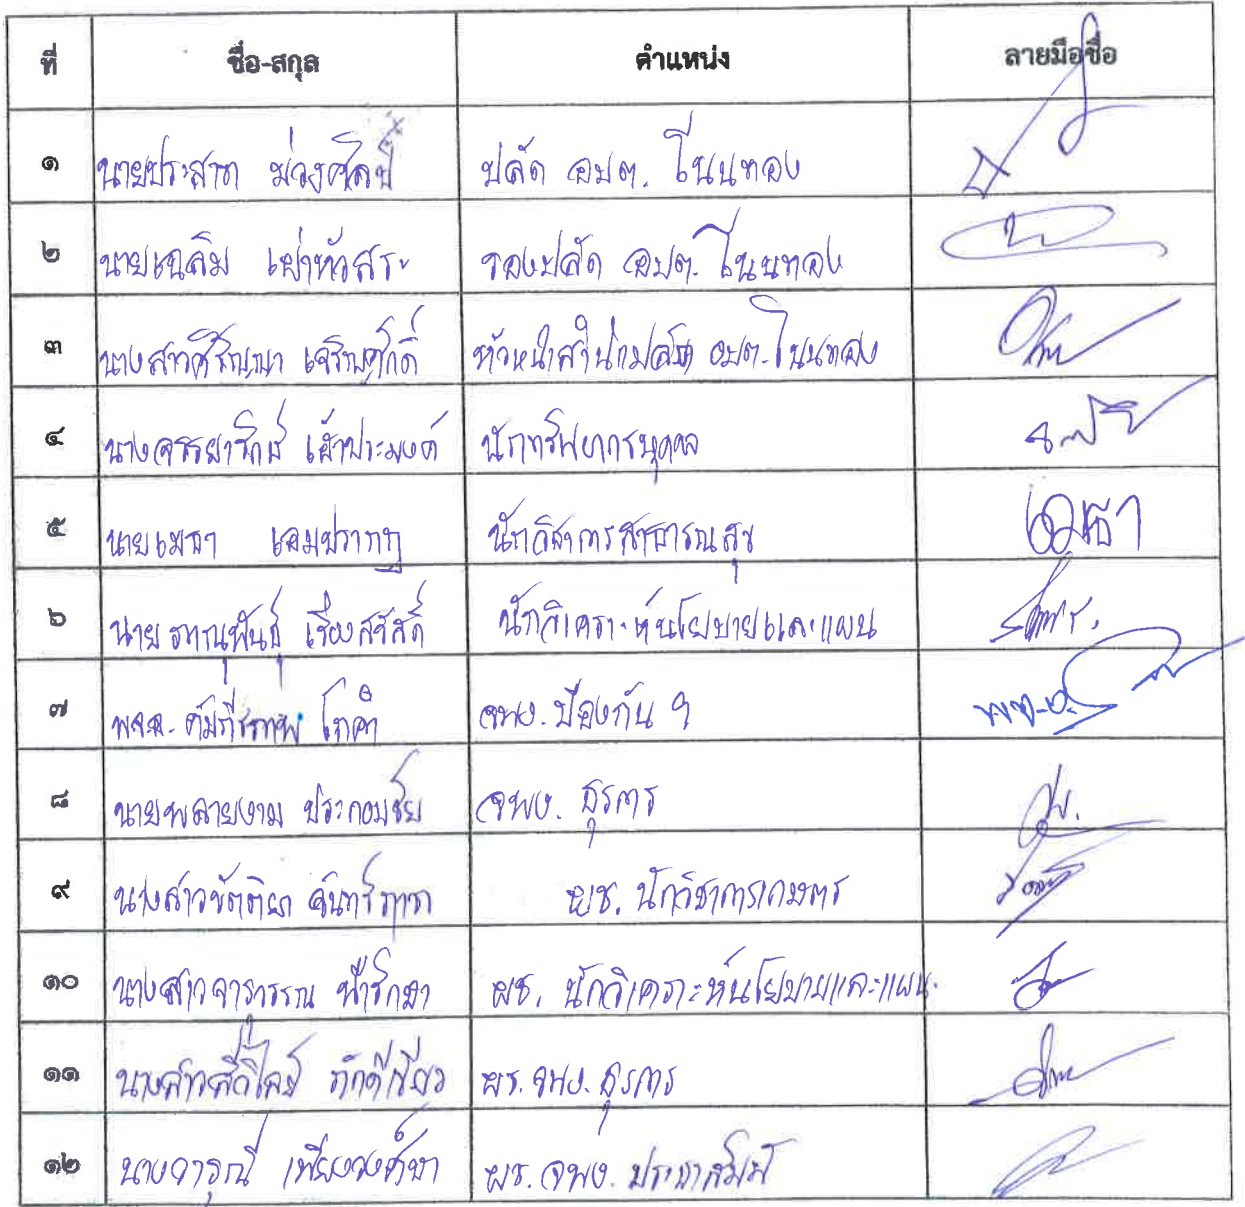 ที่ ชื่อ-สกุล ตำแหน่ง ลายมือชื่อ
๑ นายประสาท ม่วงศิลป์ ปลัด อบต. โนนทอง
๒ นายเฉลิม เผ่าหัวสระ รองปลัด อบต. โนนทอง
๓ นางสาวศิริญญา เจริญศักดิ์ หัวหน้าสำนักปลัด อบต. โนนทอง
๔ นางจรรยารักษ์ เฝ้าประมงค์ นักทรัพยากรบุคคล
๕ นายเมธา เอมปรากฎ นักวิชาการสาธารณสุข เมธา
๖ นาย เรืองสวัสดิ์ นักวิเคราะห์นโยบายและแผน
๗ พจอ. โกคำ จพง. ป้องกัน ฯ พจอ.
๘ นายพลายงาม ประกอบชัย จพง. ธุรการ
๙ นางสาวขัตติยา ผช. นักวิชาการเกษตร
๑๐ นางสาวจารุวรรณ น้ำรักษา ผช. นักวิเคราะห์นโยบายและแผน
๑๑ นางสาว ภักดีเขียว ผช. จพง. ธุรการ
๑๒ นางวารุณี เพียงวงศ์ษา ผช. จพง. ประชาสัมพั